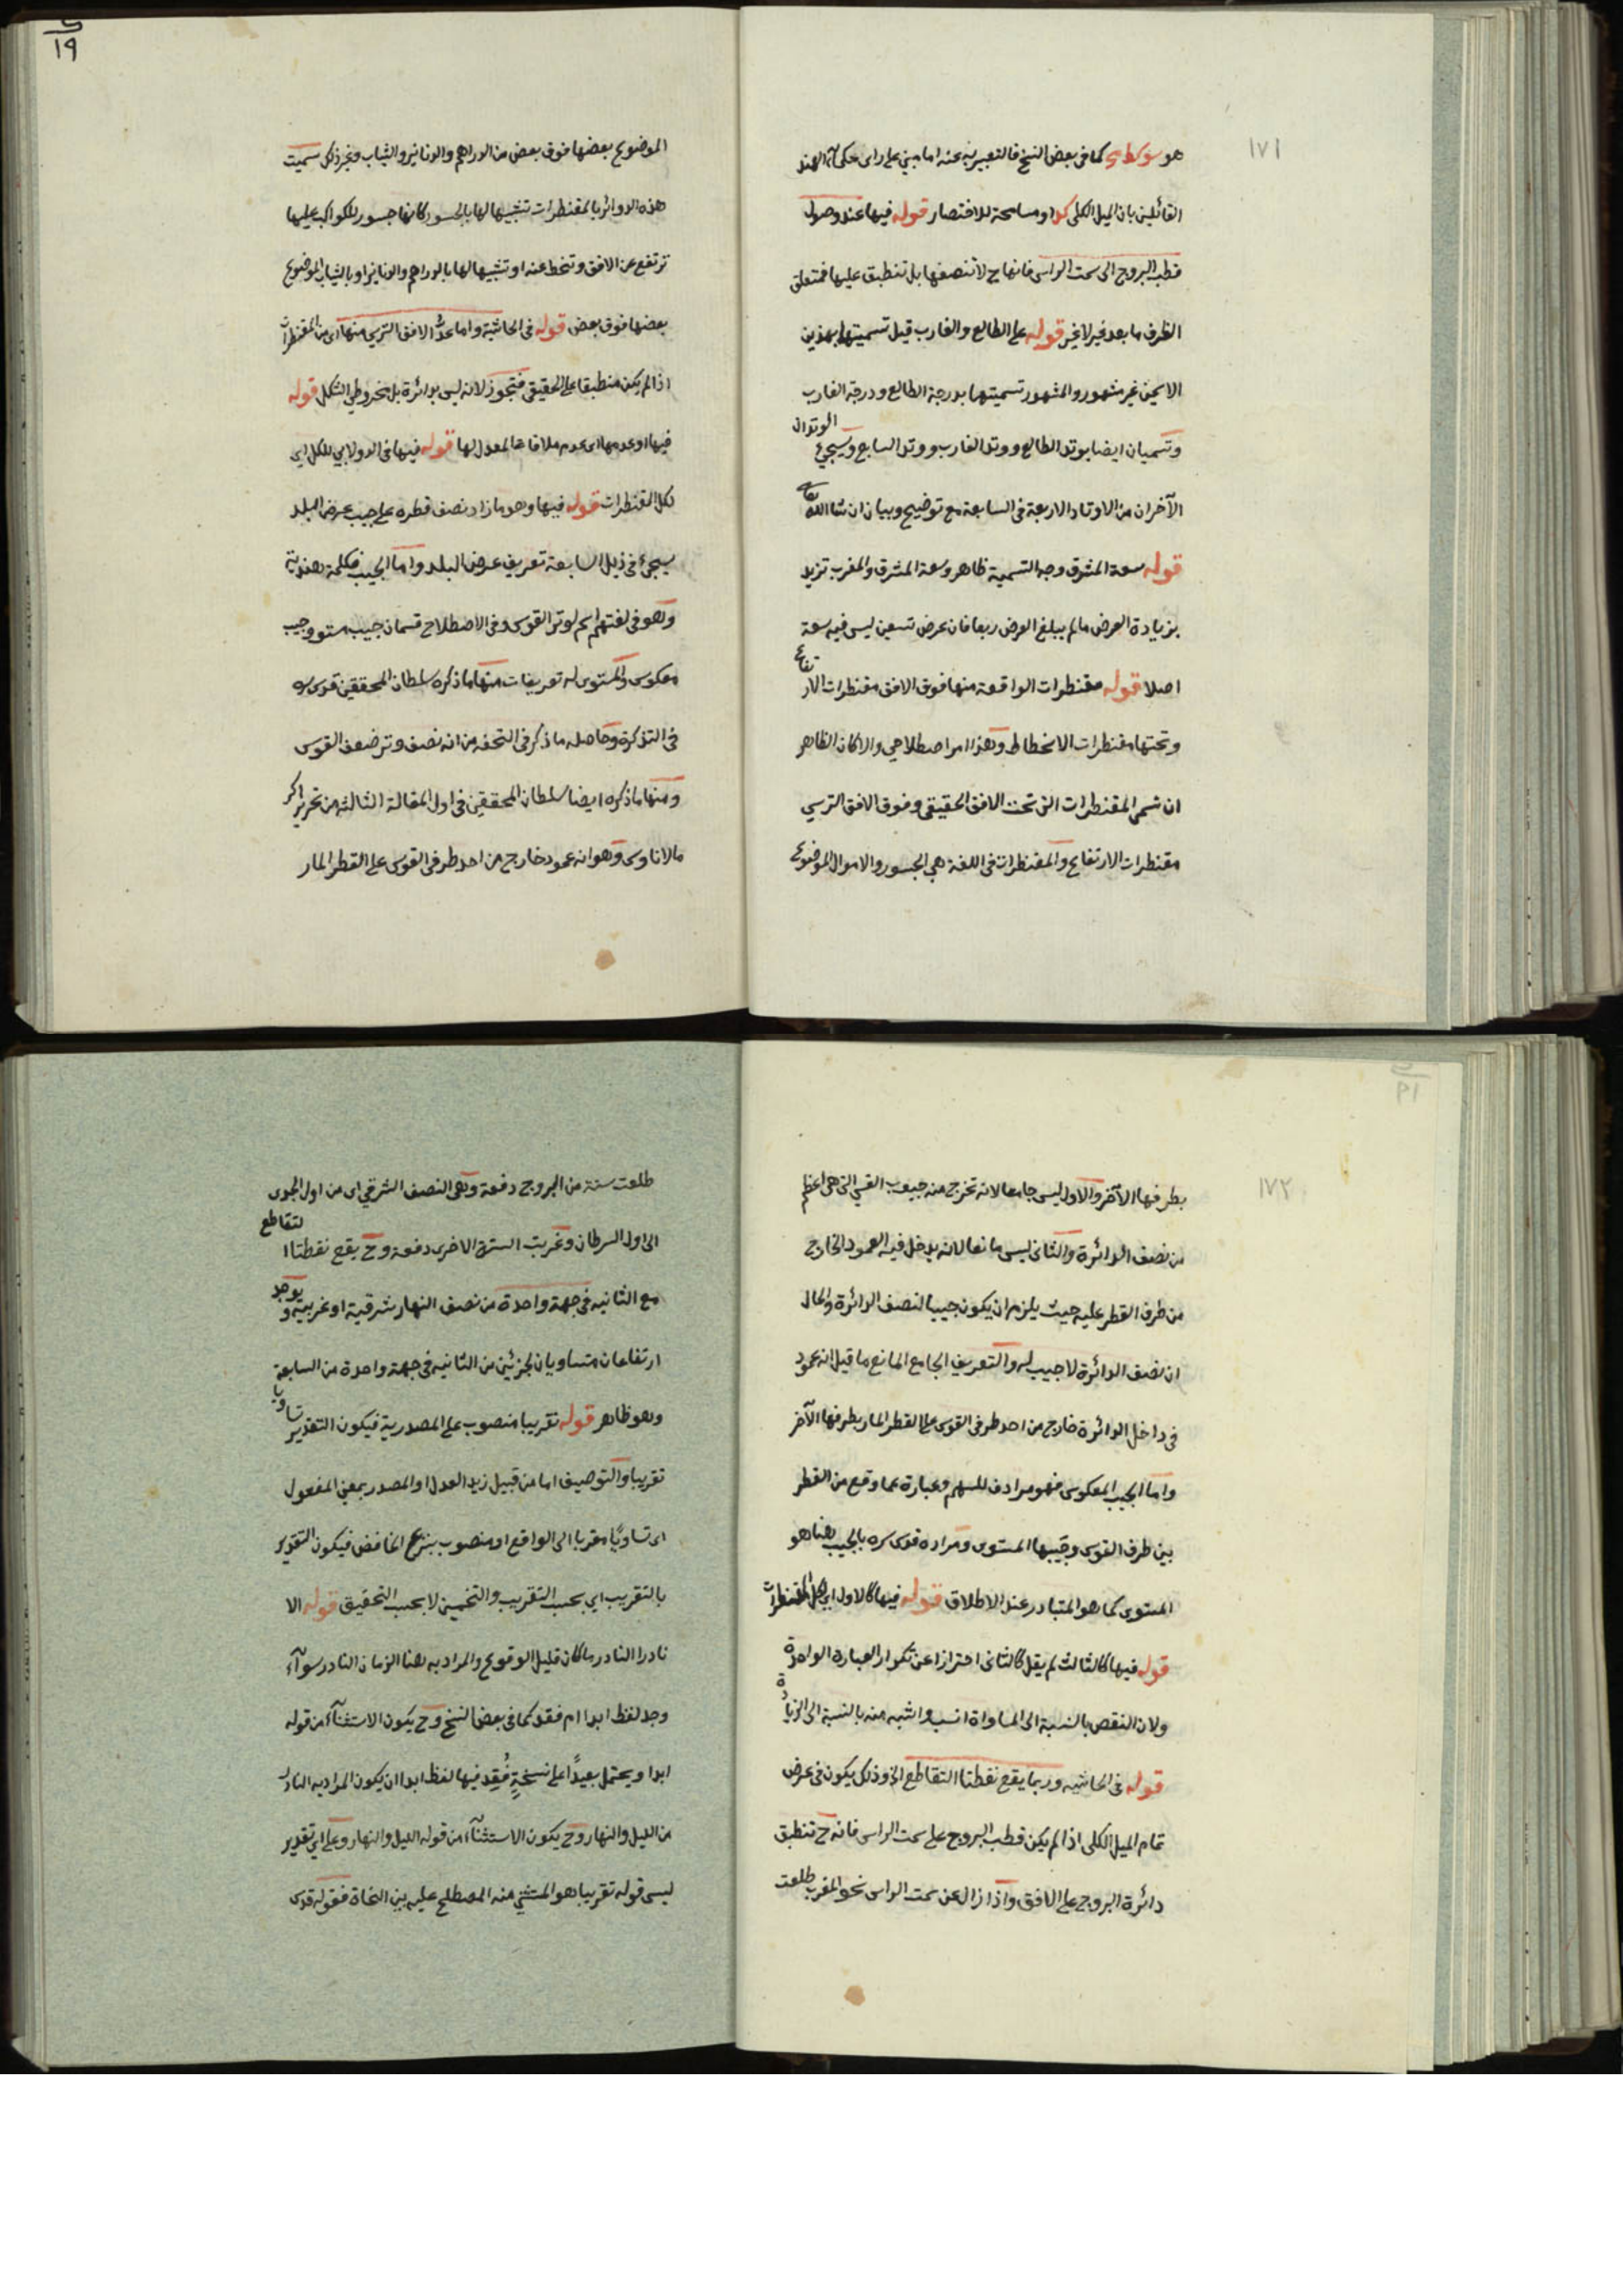 ١٧١
هو سوكطى كما فى بعض النسخ فالتعبير به عنه اما مبنى على راى حكماء الهند
القائلين بان الميل الكلى كد او مسامحة للاختصار قوله فيها عند وصول
قطب البروج الى سمت الراس فانها ح لا تنصفها بل تنطبق عليها فمتعلق
الظرف ما بعد غير لا غير قوله على الطالع والغارب قيل تسميتها بهذين
الاسمين غير مشهور والمشهور تسميتهما بدرجة الطالع ودرجة الغارب
وتسميان ايضا بوتد الطالع ووتد الغارب ووتد السابع وسيجئ الوتدان
الآخران من الاوتاد الاربعة فى السابعة مع توضيح وبيان ان شا الله تعالى
قوله سعة المشرق وجه التسمية ظاهر وسعة المشرق والمغرب تزيد
بزيادة العرض مالم يبلغ العرض ربعا فان عرض تسعين ليس فيه سعة
اصلا قوله مقنطرات الواقعة منها فوق الافق مقنطرات الارتفاع
وتحتها مقنطرات الانحطاط وهذا امر اصطلاحى والا كان الظاهر
ان تسمى المقنطرات التى تحت الافق الحقيقى وفوق الافق الترسي
مقنطرات الارتفاع والمقنطرات فى اللغة هي الجسور والاموال الموضوع
١٩
الموضوع بعضها فوق بعض من الدراهم والدنانير والثياب وغير ذلك سميت
هذه الدوائر بالمقنطرات تشبيها لها بالجسور كانها جسور للكواكب عليها
ترتفع عن الافق وتنحط عنه او تشبيها لها بالدراهم والدنانير او بالثياب الموضوع
بعضها فوق بعض قوله فى الحاشية واما عدّ الافق الترسي منها اى من المقنطرات
اذا لم يكن منطبقا على الحقيقى فتجوز لانه ليس بدائرة بل مخروطي الشكل قوله
فيها او عدمها اى عدم ملاقاة المعدل لها قوله فيها فى الدولابي للكل اى
لكل المقنطرات قوله فيها وهو ما زاد نصف قطره على جيب عرض البلد
سيجئ فى ذيل السابعة تعريف عرض البلد واما الجيب فكلمة هندية
وهو فى لغتهم اسم لوتر القوس وفى الاصطلاح قسمان جيب مستو وجيب
معكوس والمستوى له تعريفات منها ما ذكره سلطان المحققين قدس سره
فى التذكرة وحاصله ما ذكر فى التحفه من انه نصف وتر ضعف القوس
ومنها ما ذكره ايضا سلطان المحققين فى اول المقالة الثالثه من تحرير اكر
مالاناوس وهو انه عمود خارج من احد طرفى القوس على القطر المار
١٧٢
بطرفها الآخر والاول ليس جامعا لانه تخرج منه جيوب القسي التى هى اعظم
من نصف الدائرة والثانى ليس مانعا لانه يدخل فيه العمود الخارج
من طرف القطر عليه حيث يلزم ان يكون جيبا لنصف الدائرة والحال
ان نصف الدائرة لا جيب له والتعريف الجامع المانع ما قيل انه عمود
فى داخل الدائرة خارج من احد طرفى القوس على القطر المار بطرفها الآخر
واما الجيب المعكوس فهو مرادف للسهم وعبارة عما وقع من القطر
بين طرف القوس وجيبها المستوى ومراده قدس سره بالجيب هنا هو
المستوى كما هو المتبادر عند الاطلاق قوله فيها كالاول اى لكل المقنطرات
قوله فيها كالثالث لم يقل كالثانى احترازا عن تكرار العبارة الواحدة
ولان النقص بالنسبة الى المساواة انسب واشبه منه بالنسبة الى الزيادة
قوله فى الحاشيه وربما يقع نقطتا التقاطع الخ وذلك يكون فى عرض
تمام الميل الكلى اذا لم يكن قطب البروج على سمت الراس فانه ح تنطبق
دائرة البروج على الافق واذا زال عن سمت الراس نحو المغرب طلعت
طلعت ستة من البروج دفعة وهى النصف الشرقي اى من اول الجدى
الى اول السرطان وغربت الستة الاخرى دفعة وح يقع نقطتا التقاطع
مع الثانيه فى جهة واحدة من نصف النهار شرقية او غربية ويوجد
ارتفاعان متساويان لجزئين من الثانيه فى جهة واحدة من السابعة
وهو ظاهر قوله تقريبا منصوب على المصدرية فيكون التقدير تساويا
تقريبا والتوصيف اما من قبيل زيد العدل او المصدر بمعنى المفعول
اى تساويًا مقربا الى الواقع او منصوب بنزع الخافض فيكون التقدير
بالتقريب اى بحسب التقريب والتخمين لا بحسب التحقيق قوله الا
نادرا النادر ما كان قليل الوقوع والمراد به هنا الزمان النادر سوآء
وجد لفظ ابدا ام فقد كما فى بعض النسخ وح يكون الاستثنآء من قوله
ابدا ويحتمل بعيدًا على نسخةٍ فُقِد فيها لفظ ابدا ان يكون المراد به النادر
من الليل والنهار وح يكون الاستثنآء من قوله الليل والنهار وعلى اي تقدير
ليس قوله تقريبا هو المستثنى منه المصطلح عليه بين النحاة فقوله قدس